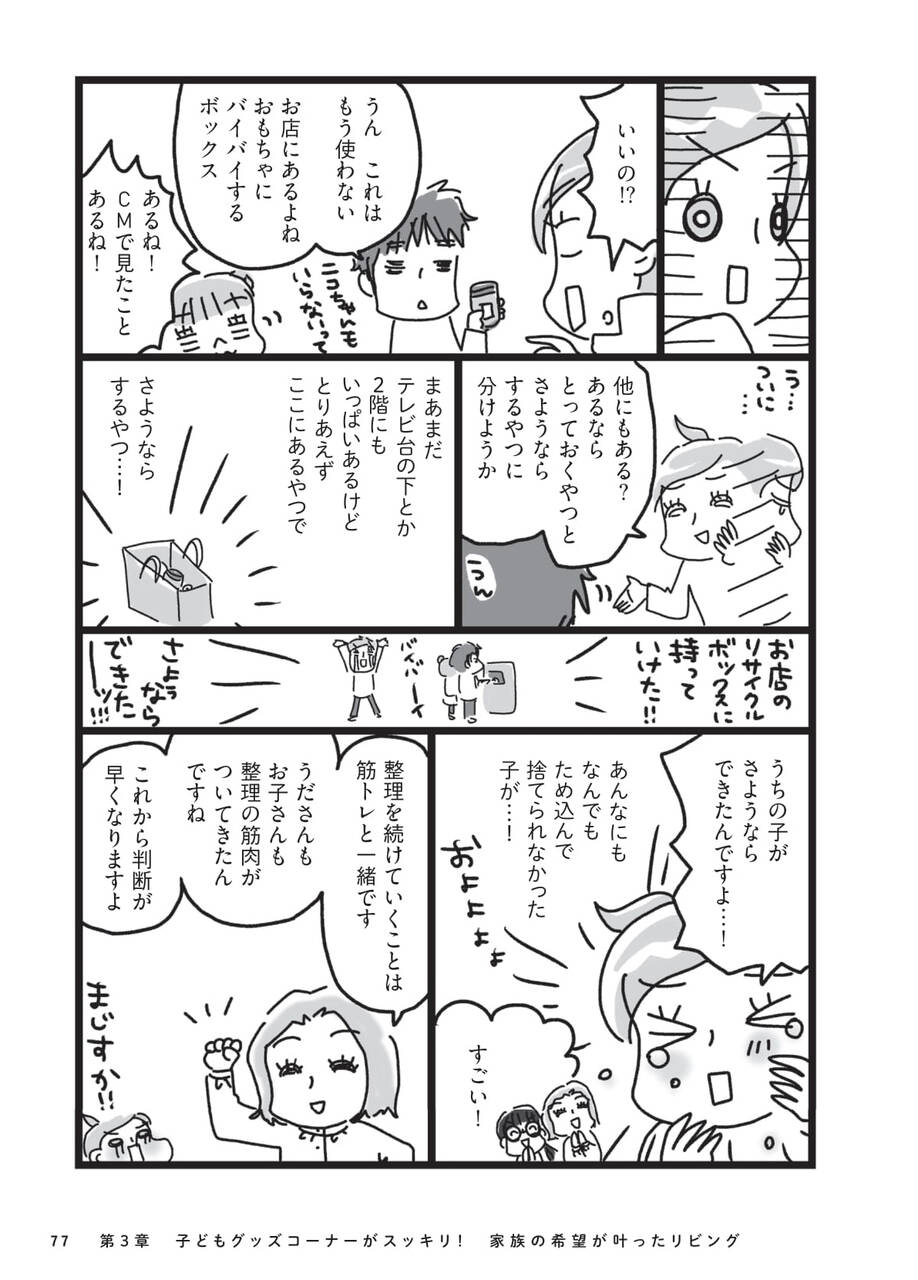 いいの!?
うん これは
もう使わない
お店にあるよね
おもちゃに
バイバイする
ボックス
ニコちゃんも
いらないって
あるね！
ＣＭで見たこと
あるね！
う…
ついに…
他にもある？
あるなら
とっておくやつと
さようなら
するやつに
分けようか
うん
まあまだ
テレビ台の下とか
2階にも
いっぱいあるけど
とりあえず
ここにあるやつで
さようなら
するやつ…！
お店の
リサイクル
ボックスに
持って
いけた!!
バイバーイ
さよう
なら
できた
ーッ!!!
うちの子が
さようなら
できたんですよ…！
あんなにも
なんでも
ため込んで
捨てられなかった
子が…！
およよよよ
すごい！
整理を続けていくことは
筋トレと一緒です
うださんも
お子さんも
整理の筋肉が
ついてきたん
ですね
これから判断が
早くなりますよ
まじすか!!
77 第3章 子どもグッズコーナーがスッキリ！ 家族の希望が叶ったリビング